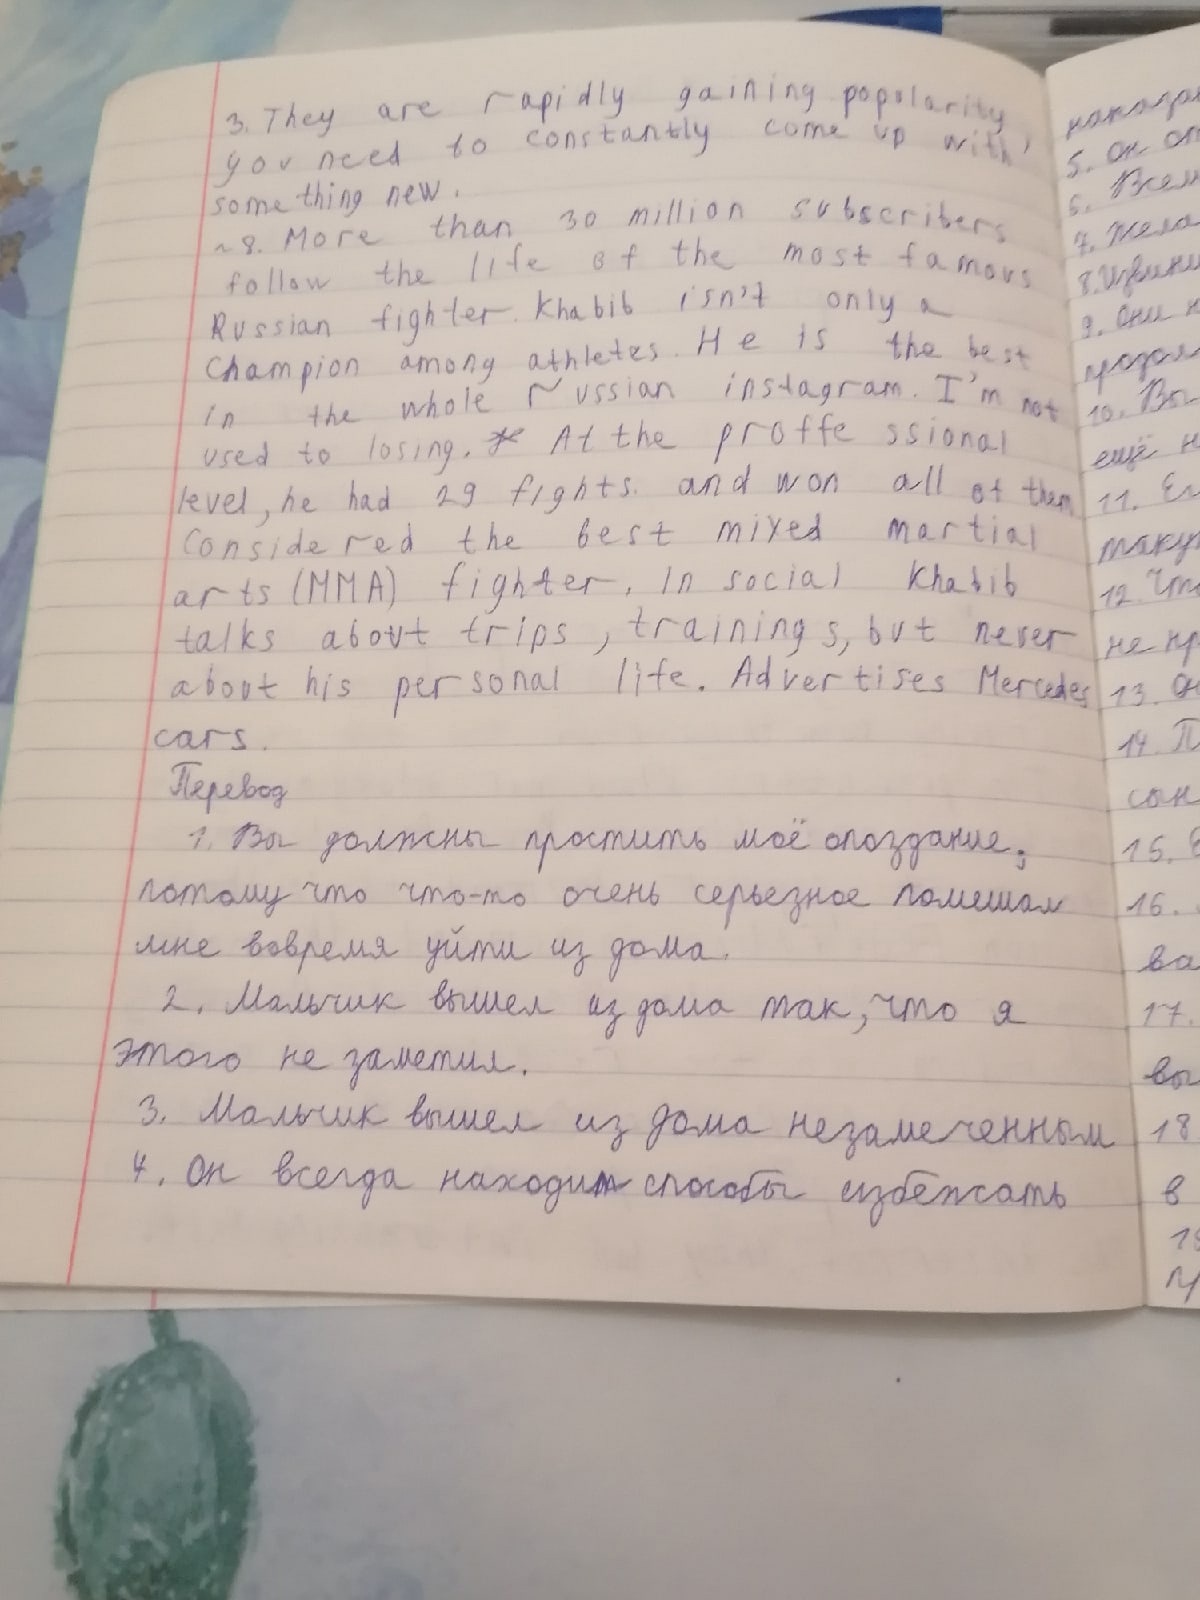 3. They are rapidly gaining popularity
you need to constantly come up with
something new.
~8. More than 30 million subscribers
follow the life of the most famous
Russian fighter. Khabib isn't only a
Champion among athletes. He is the best
in the whole russian instagram. I'm not
used to losing. At the proffessional
level, he had 29 fights. and won all of them
Considered the best mixed martial
arts (MMA) fighter. In social Khabib
talks about trips, trainings, but never
about his personal life. Advertises Mercedes
cars.
Перевод
1. Вы должны простить моё опоздание,
потому что что-то очень серьезное помешал
мне вовремя уйти из дома.
2. Мальчик вышел из дома так, что я
этого не заметил.
3. Мальчик вышел из дома незамеченным
4. Он всегда находит способы избежать
5. Он
6. Всем
7.
8.
9. Они
10. Вы
ещё
11.
12. Что
не
13.
14.
15.
16.
17.
18
в